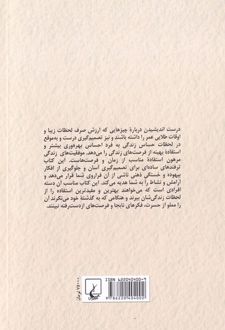 درست اندیشیدن دربارهٔ چیزهایی که ارزش صرف لحظات زیبا و
اوقات طلایی عمر را داشته باشند و نیز تصمیم‌گیری درست و به‌موقع
در لحظات حساس زندگی به فرد احساس بهره‌وری بیشتر و
استفادهٔ بهینه از فرصت‌های زندگی را می‌دهد. موفقیت‌های زندگی
مرهون استفادهٔ مناسب از زمان و فرصت‌هاست. این کتاب
ترفندهای ساده‌ای برای تصمیم‌گیری آسان و جلوگیری از افکار
بیهوده و خستگی ذهنی ناشی از آن فراروی شما قرار می‌دهد و
آرامش و نشاط را به شما هدیه می‌کند. این کتاب مناسب آن دسته
افرادی است که می‌خواهند بهترین و مفیدترین استفاده را از
لحظات زندگی‌شان ببرند و هنگامی که به گذشتهٔ خود می‌نگرند آن
را مملو از حسرت، فکرهای نابجا و فرصت‌های ازدست‌رفته نبینند.
ISBN 6220404００-9
9 786220 404002